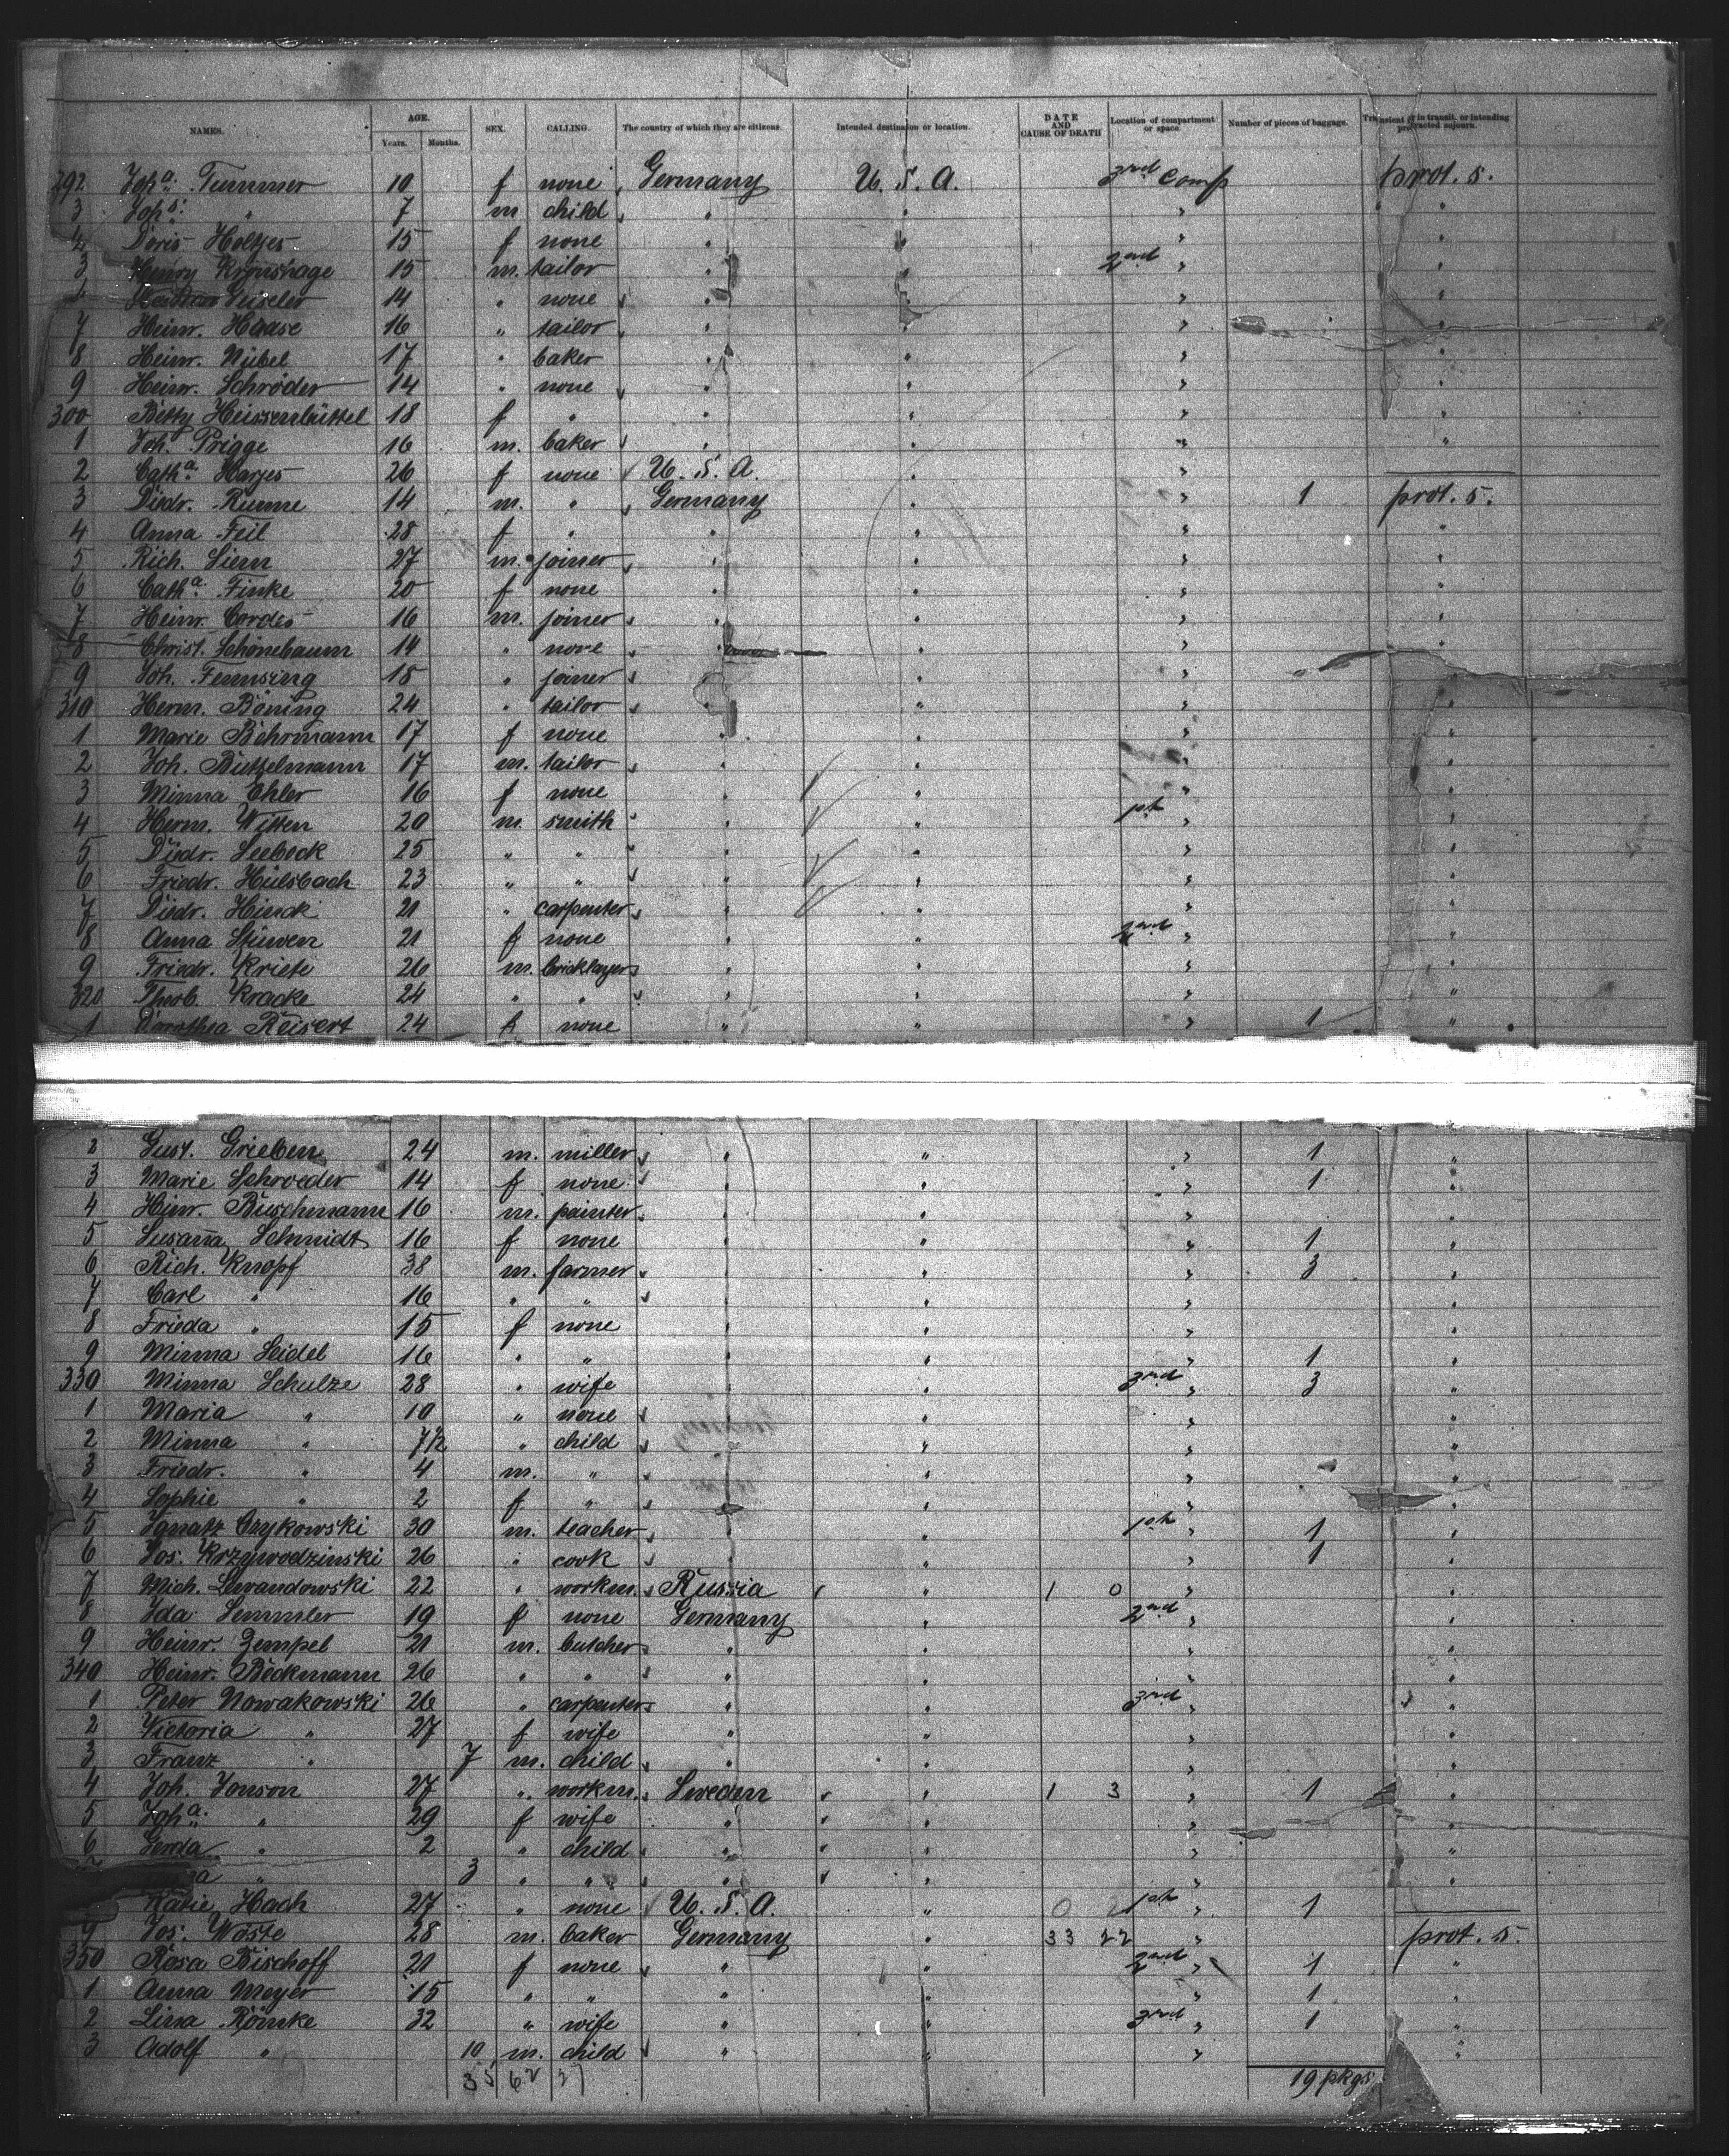 NAMES. AGE. Years. Months. SEX. CALLING. The country of which they are citizens. Intended destination or location. DATE AND CAUSE OF DEATH Location of compartment or space. Number of pieces of baggage. Transient or in transit, or intending protracted sojourn.
292 Joh.a Tummer 10 f none Germany U. S. A. 3rd comp prot. s.
3 Joh.s " 7 m child " " " "
4 Doris Holtjes 15 f none " " " "
Henry Kronshage 15 m. tailor " " 2nd " "
Geizeler 14 " none " " " "
7 Heinr. Haase 16 " tailor " " " "
8 Heinr. Nübel 17 " baker " " " "
9 Heinr. Schröder 14 " none " " " "
300 Betty Heissenbüttel 18 f " " " " "
1 Joh. Prigge 16 m. baker " " " "
2 Cath.a Harjes 26 f none U. S. A. " "
3 Diedr. Rumme 14 m. " Germany " " 1 prot. s.
4 Anna Feil 28 f " " " " "
5 Rich. Siem 27 m. joiner " " " "
6 Cath.a Finke 20 f none " " " "
7 Heinr. Cordes 16 m. joiner " " " "
8 Christ. Schönebaum 14 " none " " " "
9 Joh. Femsing 18 " joiner " " " "
310 Herm. Böning 24 " tailor " " " "
1 Marie Behrmann 17 f none " " " "
2 Joh. Butzelmann 17 m. tailor " " " "
3 Minna Ehler 16 f none " " " "
4 Herm. Witten 20 m. smith " " 1st " "
5 Diedr. Seebeck 25 " " " " " "
6 Friedr. Hülsbach 23 " " " " " "
7 Diedr. Hinck 21 " carpenter " " " "
8 Anna Stüwen 21 f none " " 2nd " "
9 Friedr. Kriete 26 m. bricklayer " " " "
320 Theob. Kracke 24 " " " " " "
1 Dorothea Reisert 24 f. none " " " 1 "
2 Gust. Grieben 24 m. miller " " " 1 "
3 Marie Schroeder 14 f none " " " 1 "
4 Hinr. Buschmann 16 m. painter " " " "
5 Susana Schmidt 16 f none " " " 1 "
6 Rich. Knopf 38 m. farmer " " " 3 "
7 Carl " 16 " " " " " "
8 Frieda " 15 f none " " " "
9 Minna Seidel 16 " " " " " 1 "
330 Minna Schulze 28 " wife " " 3rd " 3 "
1 Maria " 10 " none " " " "
2 Minna " 7½ " child " " " "
3 Friedr. " 4 m. " " " " "
4 Sophie " 2 f " " " " "
5 Ignatz Czykowski 30 m. teacher " " 1st " 1 "
6 Jos. Krzywodzinski 26 " cook " " " 1 "
7 Mich. Lewandowski 22 " workm. Russia " 1 0 " "
8 Ida Semmler 19 f none Germany " 2nd " "
9 Heinr. Zempel 21 m. butcher " " " "
340 Heinr. Beckmann 26 " " " " " "
1 Peter Nowakowski 26 " carpenter " " 3rd " "
2 Victoria " 27 f wife " " " "
3 Franz " 7 m. child " " " "
4 Joh. Jonson 27 " workm. Sweden " 1 3 " 1 "
5 Joh.a " 29 f wife " " " "
6 Gerda " 2 " child " " " "
" 3 " " " " " "
Katie Hach 27 " none U. S. A. " 0 2 1st " 1
9 Jos. Woste 28 m. baker Germany " 33 22 " prot. s.
350 Rosa Bischoff 21 f none " " 2nd " 1 "
1 Anna Meyer 15 " " " " " 1 "
2 Lina Römke 32 " wife " " 3rd " 1 "
3 Adolf " 10 m. child " " " "
35 62 27 19 pkgs